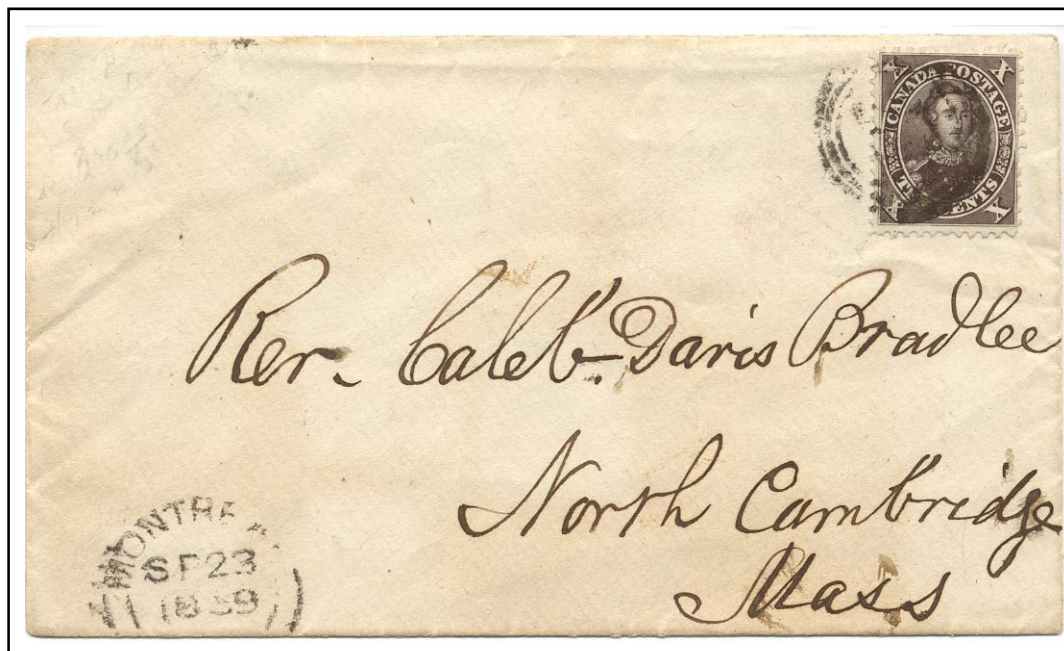 X CANADA POSTAGE X
X TEN CENTS X
Rev. Caleb Davis Bradlee
North Cambridge
Mass
MONTREAL
SP 23
1859